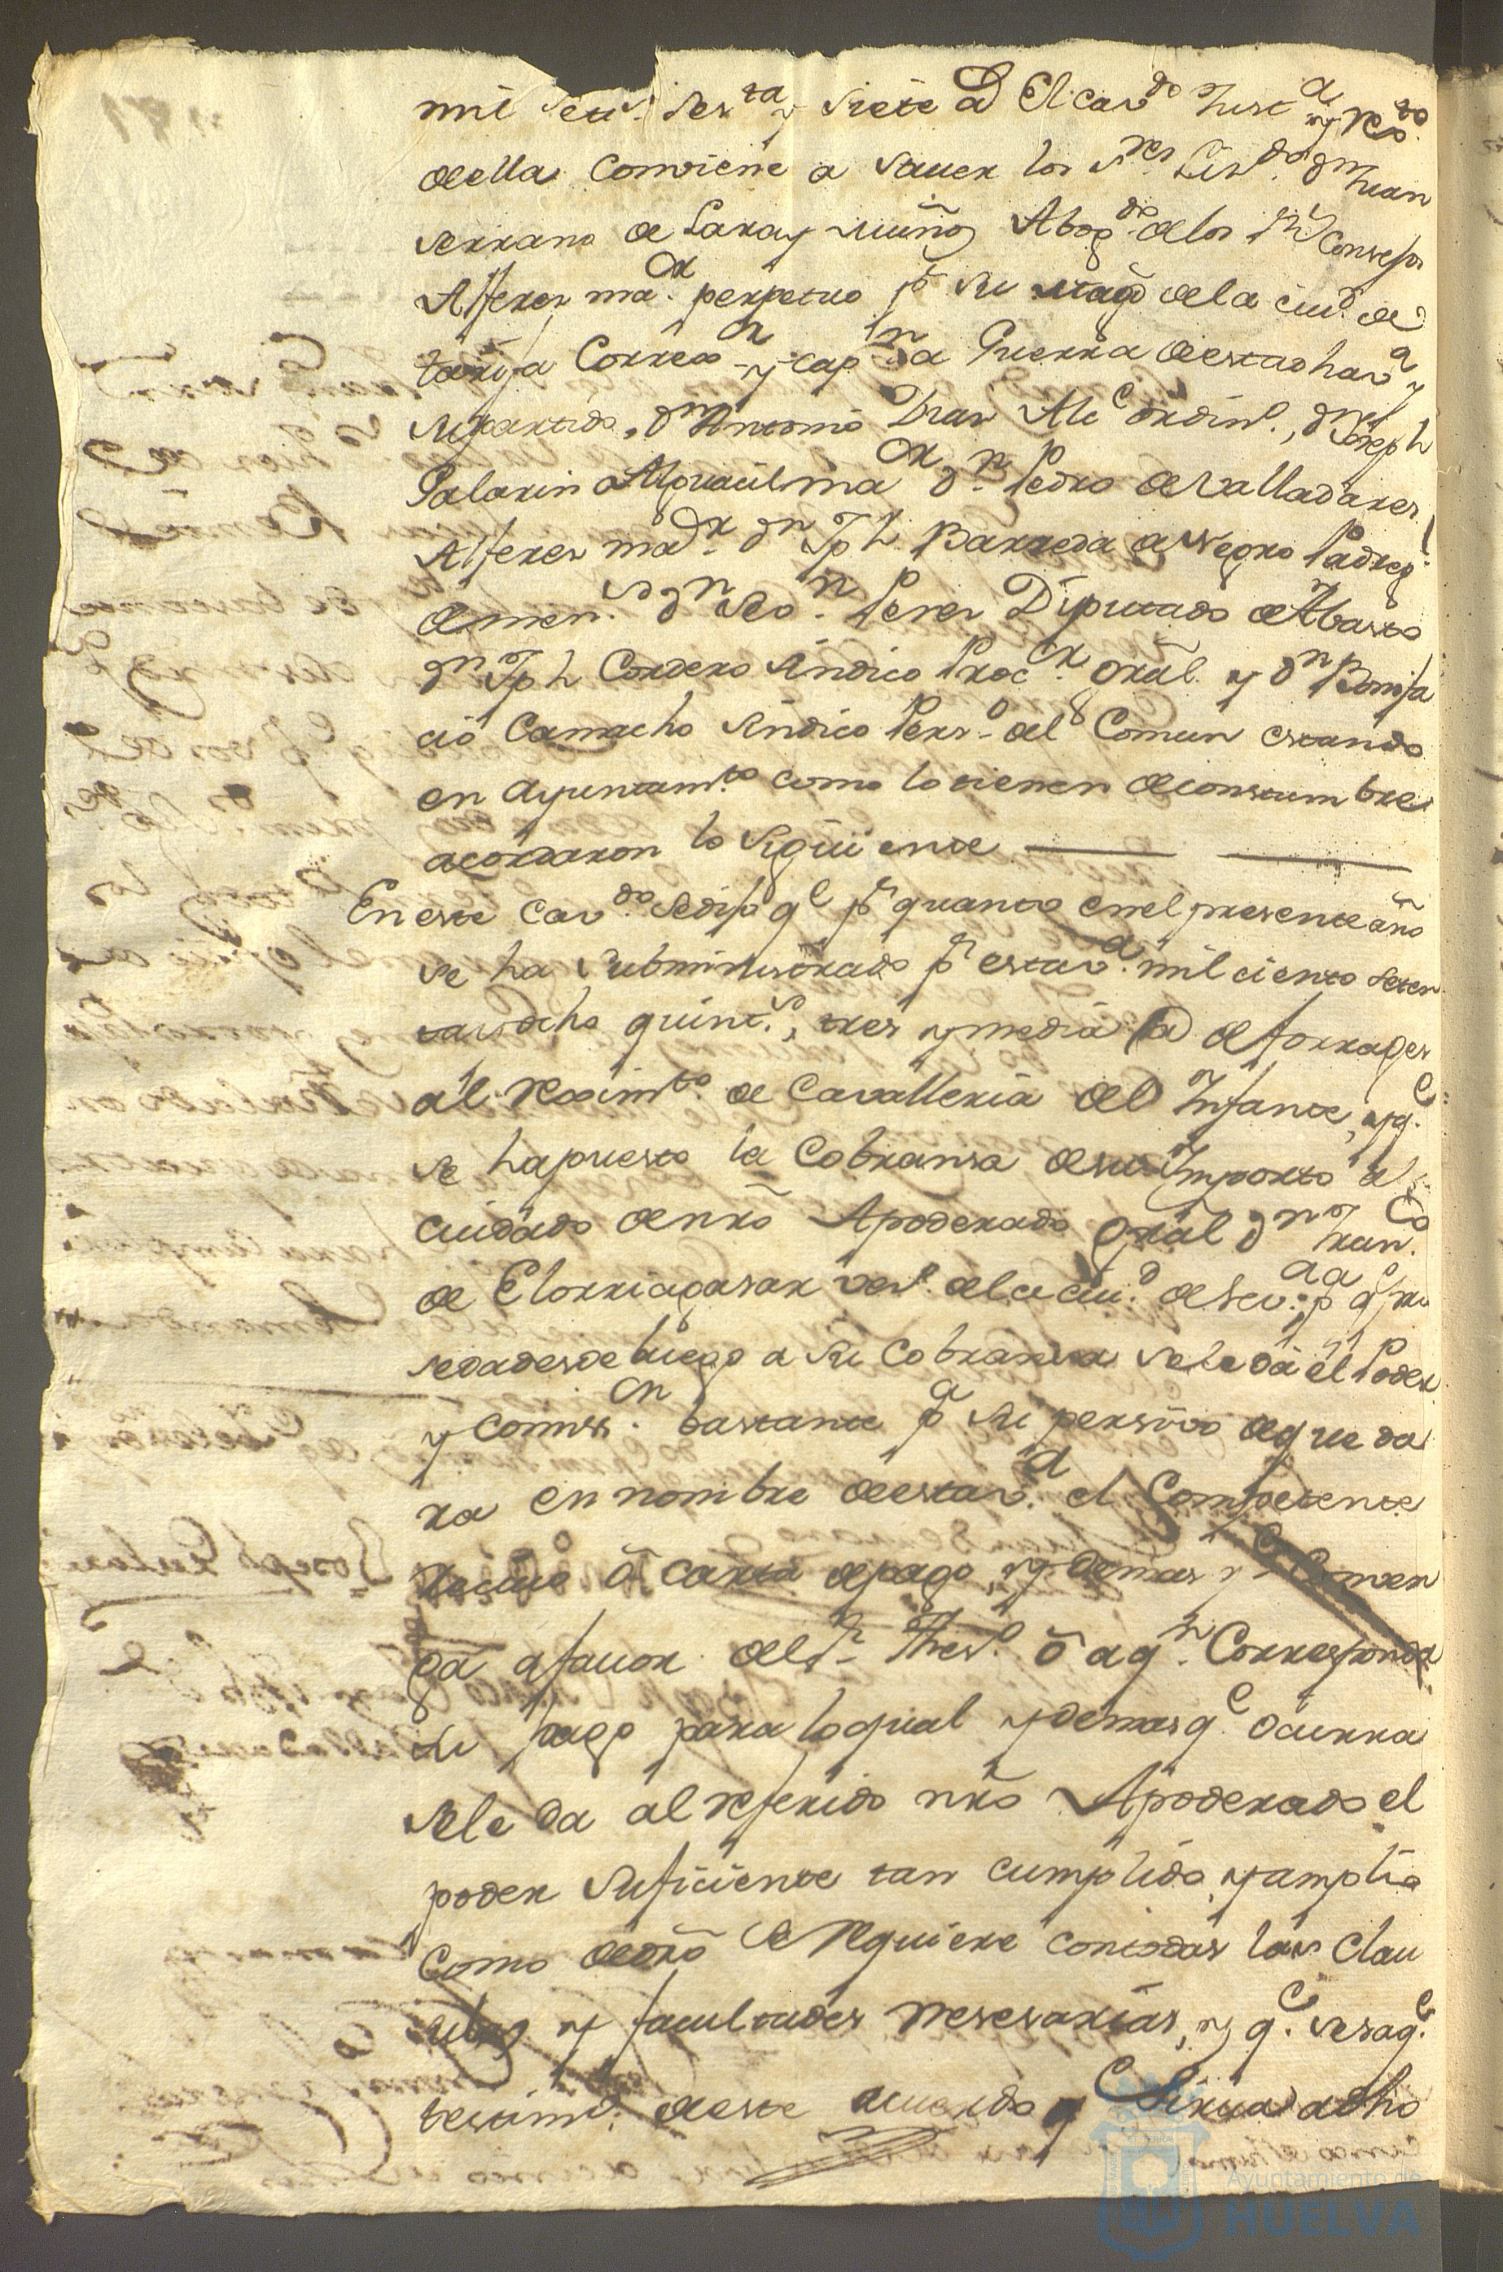 mil setts. sesta. y siete as El cavdo. Justa. y Rexto.
de ella Conviene a saver los sres. Lisdo. dn Juan
serrano de Lara y muñoz Abogdo. de los Rs Consejos
Alferes maor. perpetuo pr su Magd de la ciud. de
tarifa Correxor. y capn a Guerra de esta dha va. y
su partido, dn Antonio Dias Alce ordino., dn Joseph
Palarin Alguacil maor dn. Pedro de Valladares
Alferes maor. dn Jph Barreda de Negro Padre gl.
de mens. dn Seon. Peres Diputado de Abasto
dn Jph Cordero sindico Procr. Gral. y dn Bonifa
cio Camacho sindico Perso. del Comun estando
en Ayuntamto. como lo tienen de constumbre
acordaron lo siguiente
En este cavdo. se dijo qe pr quanto en el presente año
se ha subministrado pr esta va. mil ciento seten
ta y ocho quints., tres y media @ de forrages
al Reximto. de Cavalleria del Infante, y qe.
se ha puesto la Cobransa de su Importe al
cuidado de nro Apoderado Gral dn Franco.
de Elorriaga sar veso. de la ciud. de Seva. pa qe
se da desde luego a su Cobransa se le da el Poder
y comisn. bastante pa su persivo de que da
ra en nombre de esta va. el Competente
recivo ó carta de pago, y demas qe Conven
ga a favor del sr. Theso. ó a qn. Corresponda
su pago para lo qual y demas qe. ocurra
se le da al referido nro Apoderado el
poder suficiente tan cumplido, y amplio
como de dro se requiere con todas las clau
sulas y facultades nesesarias, y qe. se saqe.
testimo. de este acuerdo qe sirva a dho
Ayuntamiento de
HUELVA